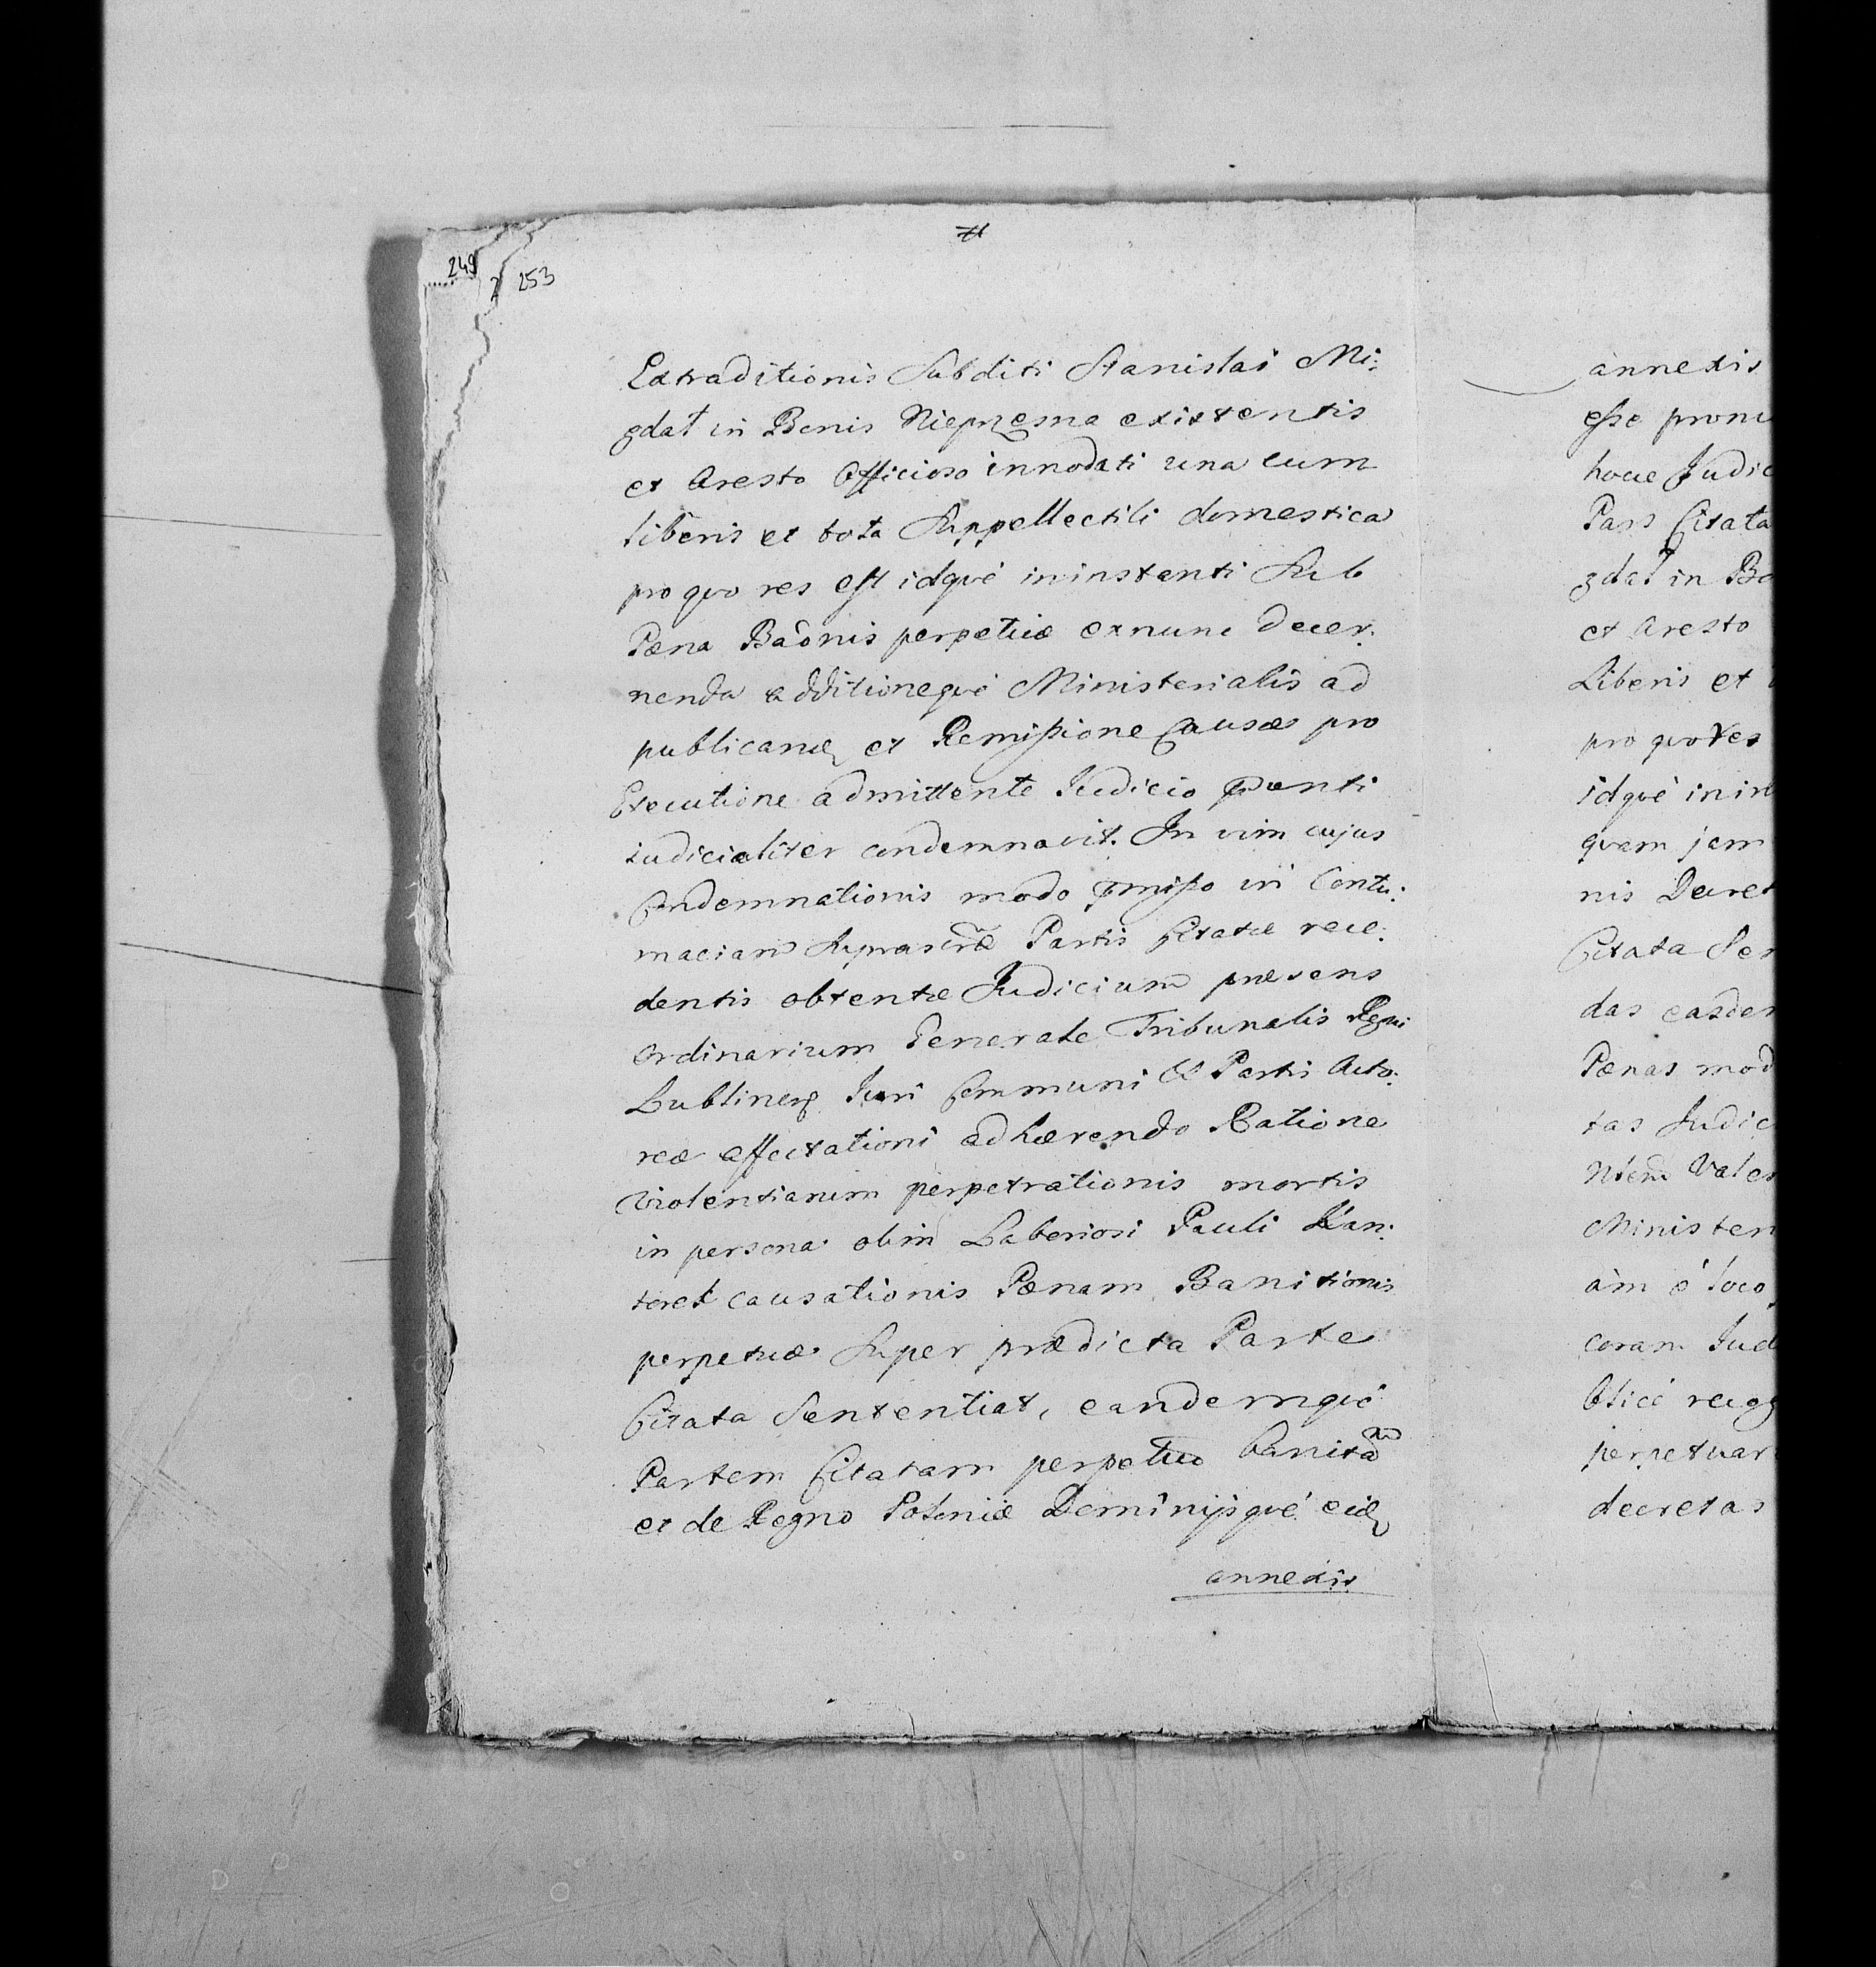 249
253
Extraditionis Subditi Stanislai Mi:
gdał in Bonis Nieprzesna existentis
et Aresto Officioso innodati una cum
liberis et tota Suppellectili domestica
pro quo res est idque in instanti Sub
Pæna Baõnis perpetuæ exnunc decer:
nenda additioneque Ministerialis ad
publicand et Remissione Causæ pro
Executione admittente Judicio pñti
iudicialiter condemnavit. In vim cujus
Condemnationis modo pmisso in Contu:
maciam Suprascræ Partis Citatæ rece:
dentis obtentæ Judicium præsens
Ordinarium Generale Tribunalis Regni
Lublinen Juri Communi & Partis Acto:
reæ affectationi adhærendo Ratione
violentiarum perpetrationis mortis
in persona olim Laboriosi Pauli Kan:
toret causationis Pænam Banitionis
perpetuæ Super prædicta Parte
Citata Sententiat, eandemque
Partem Citatam perpetuo banitam
et de Regno Poloniæ Dominijsque eid
annexis
annexis
esse
hocce Judic
Pars Citata
gdał in Bo
et Aresto
Liberis et
pro quo res
idque in in
quam jam
nis Decret
Citata Sen
das easdem
Pænas mod
tas Judic
Ministeri
am e loco
coram Jud
blice
perpetuar
decretas